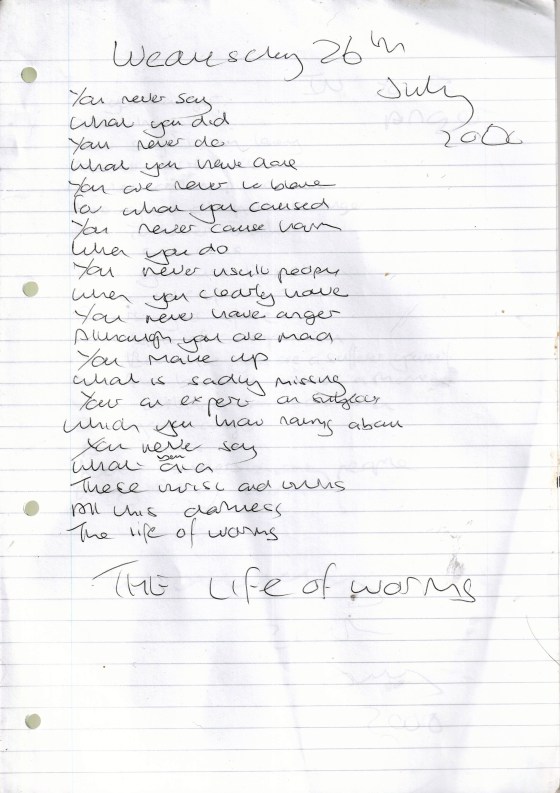 Wednesday 26th
July
2000
You never say
What you did
You never do
What you have done
You are never to blame
For what you caused
You never cause harm
When you do
You never insult people
When you clearly have
You never have anger
Although you are mad
You make up
What is sadly missing
Your an expert on
Which you know nothing about
You never say
What you did
These twist and
All this darkness
The life of worms
THE LIFE of worms